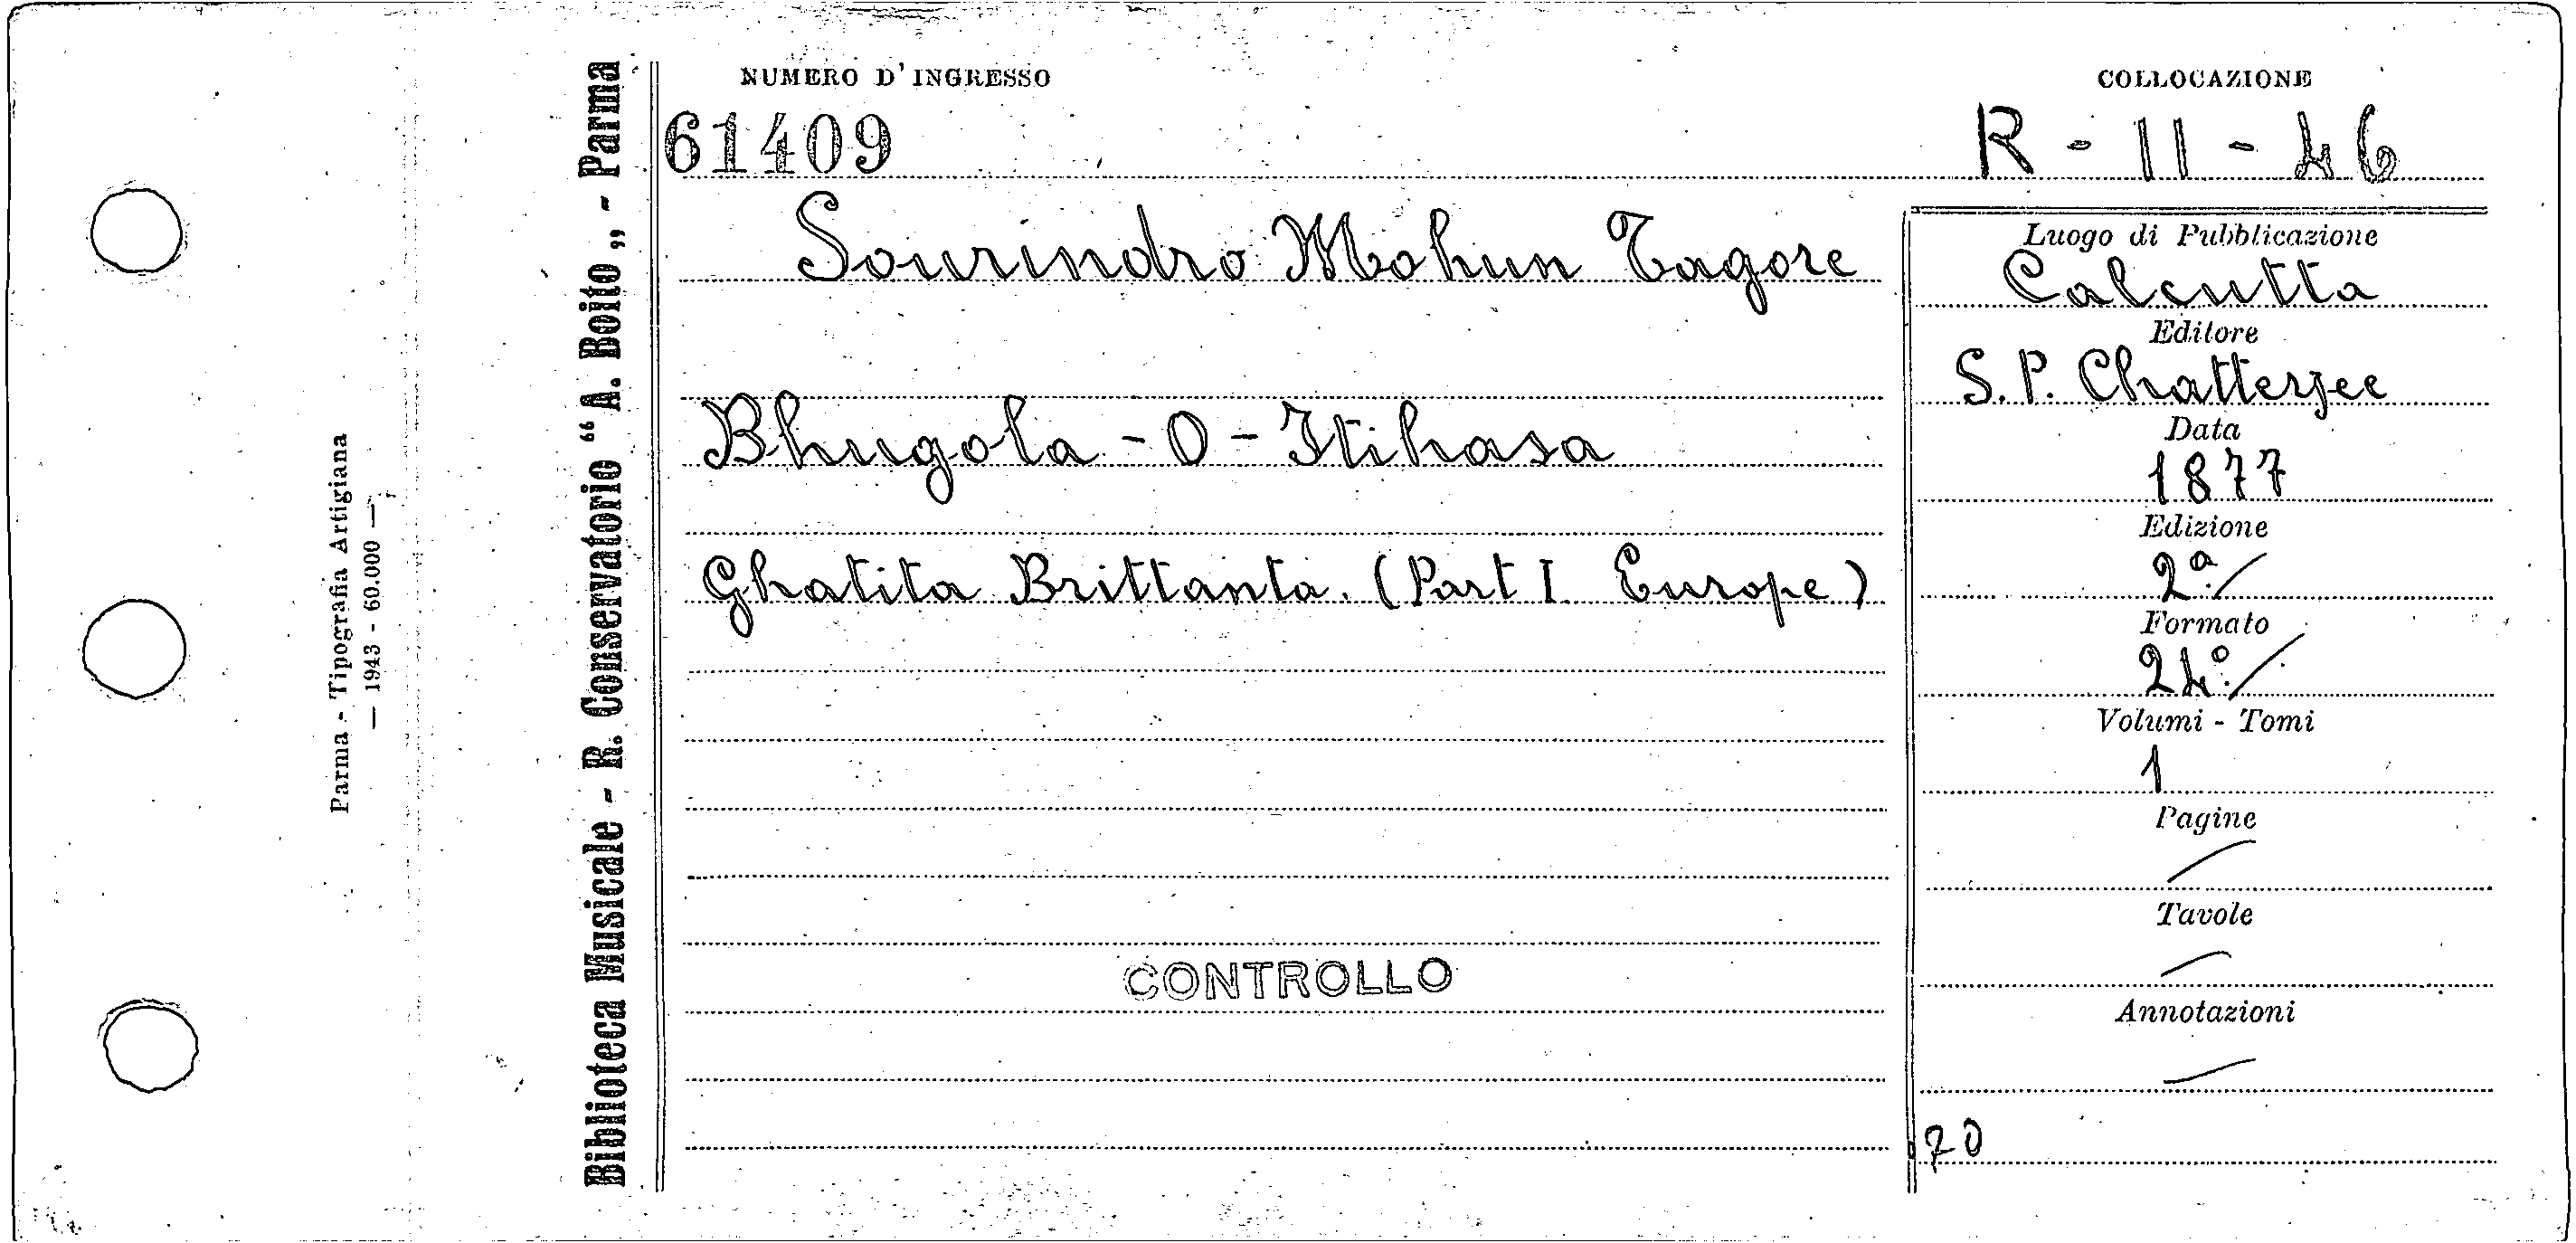 Parma - Tipografia Artigiana
— 1943 - 60.000 —
Biblioteca Musicale - R. Conservatorio “A. Boito„ - Parma
NUMERO D'INGRESSO
61409
COLLOCAZIONE
R - 11 - 46
Sourindro Mohun Tagore
Bhugola - O - Itihasa
Ghatita Brittanta. (Part I Europe)
CONTROLLO
Luogo di Pubblicazione
Calcutta
Editore
S. P. Chatterjee
Data
1877
Edizione
2ª
Formato
24º
Volumi - Tomi
1
Pagine
Tavole
Annotazioni
70